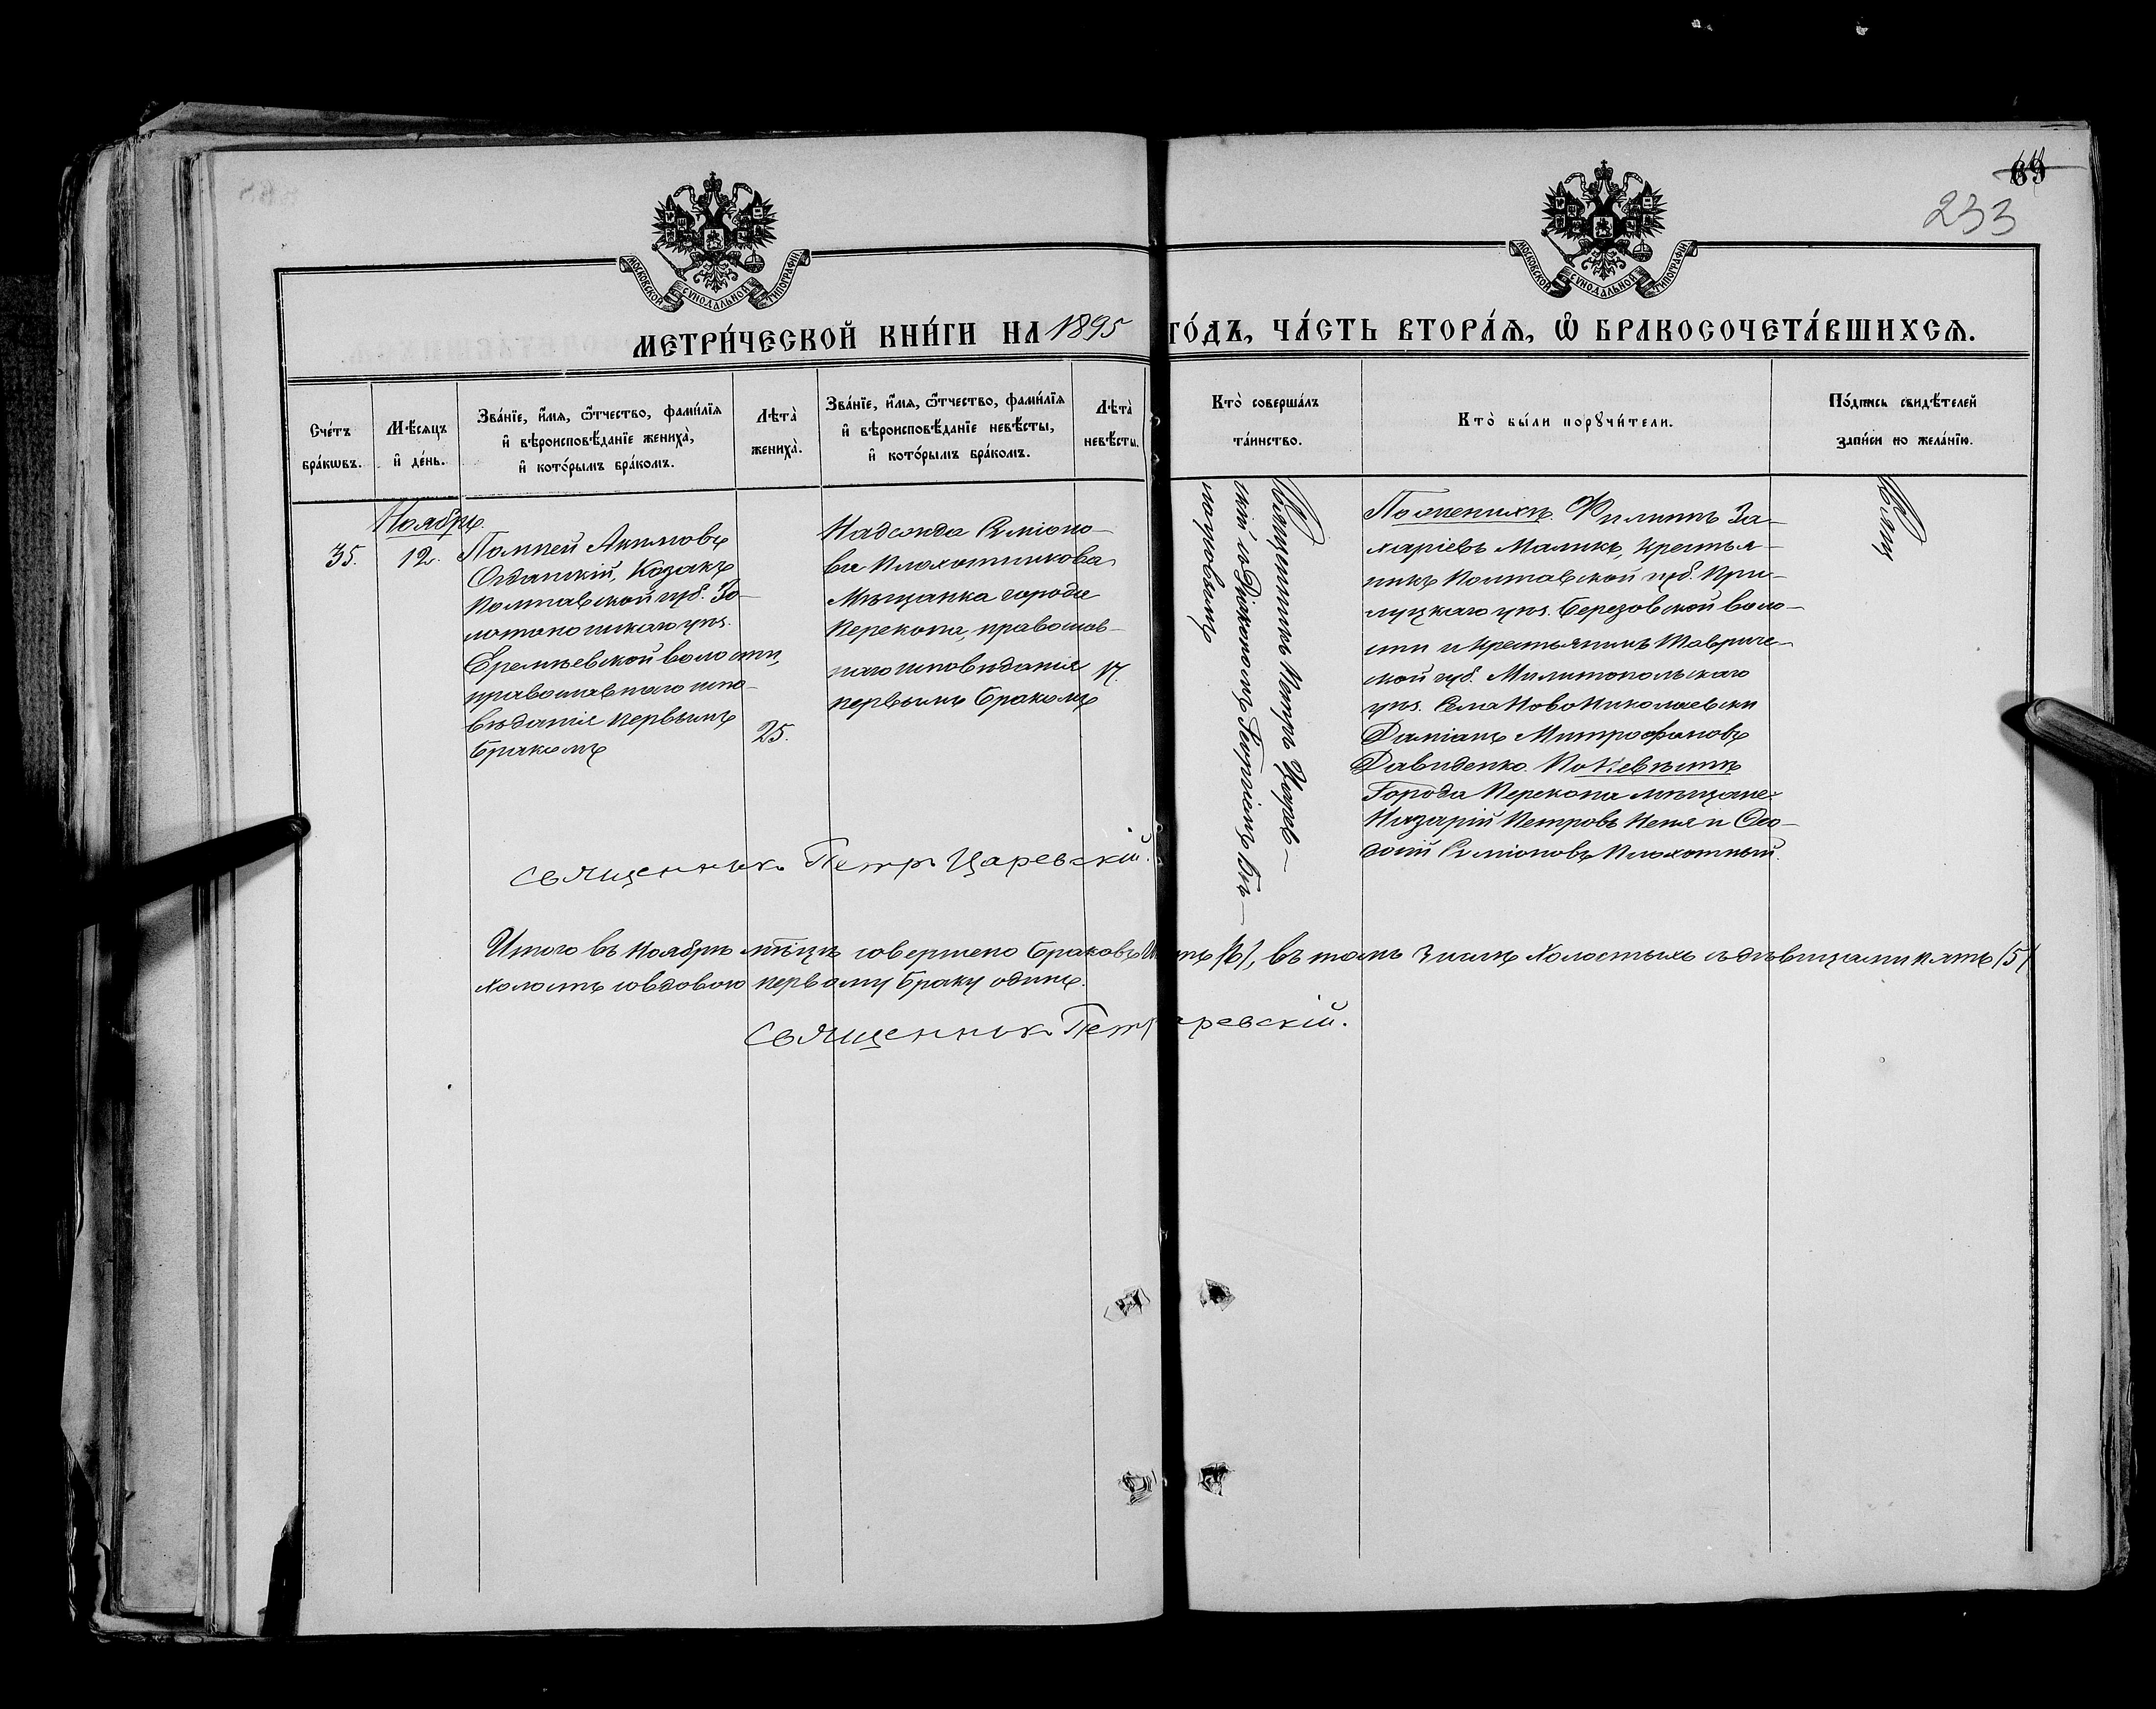 69
233
МОСКОВСКОЙ СѴНОДАЛЬНОЙ ТИПОГРАФІИ
МОСКОВСКОЙ СѴНОДАЛЬНОЙ ТИПОГРАФІИ
МЕТРИ́ЧЕСКОЙ КНИ́ГИ НА 1895 ГО́ДЪ, ЧА́СТЬ ВТОРА́Я, Ѽ БРАКОСОЧЕТА́ВШИХСЯ.
Сче́тъ
бра́кѡвъ.
Мѣ́сяцъ
и҆ де́нь.
Зва́нїе, и҆́мя, ѻ҆́тчество, фами́лїя
и҆ вѣроисповѣ́данїе жениха̀,
и҆ кото́рымъ бра́комъ.
Лѣта̀
жениха̀.
Зва́нїе, и҆́мя, ѻ҆́тчество, фами́лїя
и҆ вѣроисповѣ́данїе невѣ́сты,
и҆ кото́рымъ бра́комъ.
Лѣта̀
невѣ́сты.
Кто̀ соверша́лъ
та́инство.
Кто̀ бы́ли порꙋчи́тели.
По́дпись свидѣ́телей
за́писи по жела́нїю.
Ноябрь.
35.
12.
Помпей Акимовъ
Огданскій, Козакъ
Полтавской губ. Зо-
лотоношскаго уѣз.
Еремѣевской волости,
православнаго испо-
вѣданія первымъ
бракомъ
25.
Надежда Симіоно-
ва Плохотникова
Мѣщанка города
Перекопа, православ-
наго исповѣданія
первымъ бракомъ
17.
Священникъ Петръ Царев-
скій съ Діакономъ Георгіемъ
По женихѣ. Филиппъ За-
харіевъ Маликъ, крестья-
нинъ Полтавской губ. При-
луцкаго уѣз. Березовской воло-
сти и крестьянинъ Тавриче-
ской губ. Мелитопольскаго
уѣз. Села НовоНиколаевки
Даміанъ Митрофановъ
Давиденко. По Невѣстѣ
Города Перекопа мѣщане:
Назарій Петровъ и Ѳео-
досій Симіоновъ Плохотный.
Священникъ Петръ Царевскій.
Итого въ Ноябрѣ мѣсяцѣ совершено браковъ /6/, въ томъ числѣ Холостыхъ съ дѣвицами пять /5/
холостъ со вдовою первому браку одинъ.
Священникъ Петръ Царевскій.